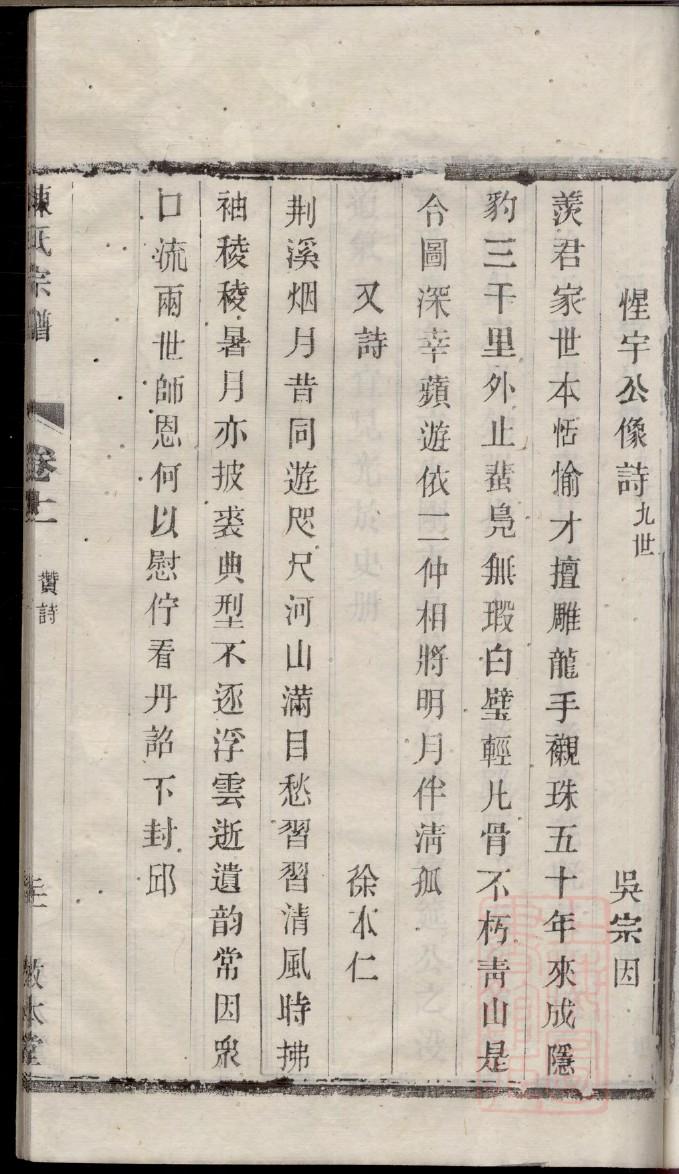 惺宇公像詩九世　吳宗因
羨君家世本恬愉才擅雕龍手襯珠五十年來成隱
豹三千里外止蜚鳧無瑕白璧輕凡骨不朽青山是
令圖深幸蘋遊依二仲相將明月伴清孤
又詩　徐本仁
荆溪烟月昔同遊咫尺河山滿目愁習習清風時拂
袖稜稜暑月亦披裘典型不逐浮雲逝遺韵常因衆
口流兩世師恩何以慰佇看丹詔下封邱
陳氏宗譜　卷十一　贊詩　敦本堂